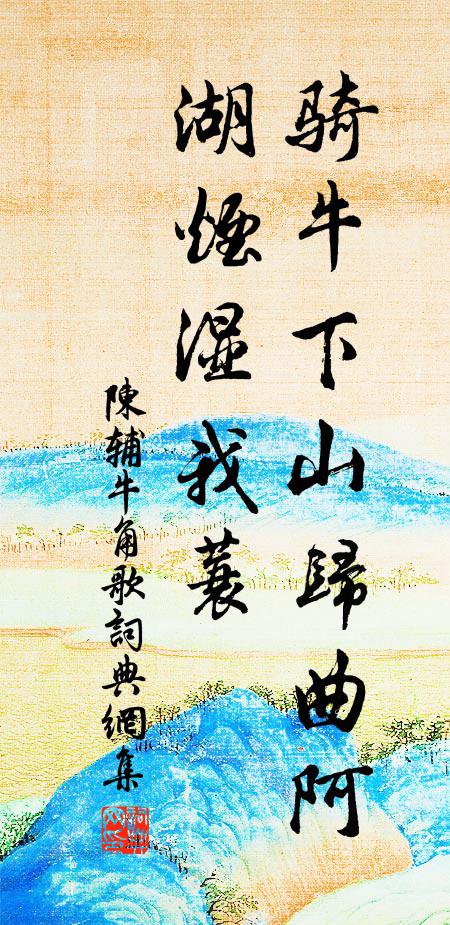 骑牛下山歸曲阿
湖煙湿我蓑
陳辅牛角歌詞典網集